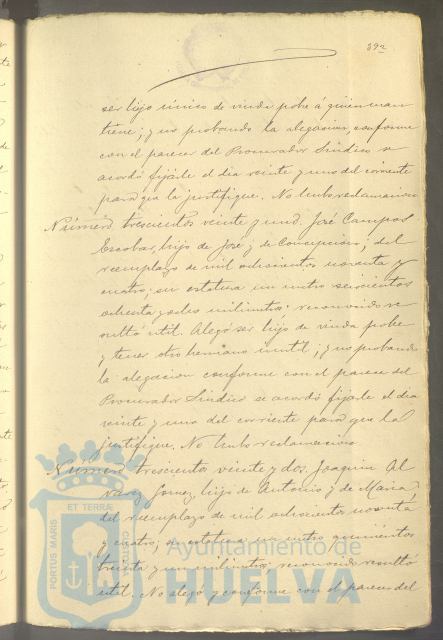 392
ser hijo único de viuda pobre á quien man
tiene; y no probando la alegacion conforme
con el parecer del Procurador Síndico se
acordó fijarle el dia veinte y uno del corriente
para que la justifique. No hubo reclamacion
Número trescientos veinte y uno. José Campos
Escobar, hijo de José y de Concepcion; del
reemplazo de mil ochocientos noventa y
cuatro; su estatura un metro seiscientos
ochenta y ocho milimetros; reconocido re
sultó útil. Alegó ser hijo de viuda pobre
y tener otro hermano inutil; y no probando
la alegacion conforme con el parecer del
Procurador Síndico se acordó fijarle el dia
veinte y uno del corriente para que la
justifique. No hubo reclamacion
Número trescientos veinte y dos. Joaquin Al
varez Gomez, hijo de Antonio y de Maria
del reemplazo de mil ochocientos noventa
y cuatro; su estatura un metro quinientos
treinta y un milimetros; reconocido resultó
útil. No alegó y conforme con el parecer del
PORTUS MARIS ET TERRAE
Ayuntamiento de
HUELVA